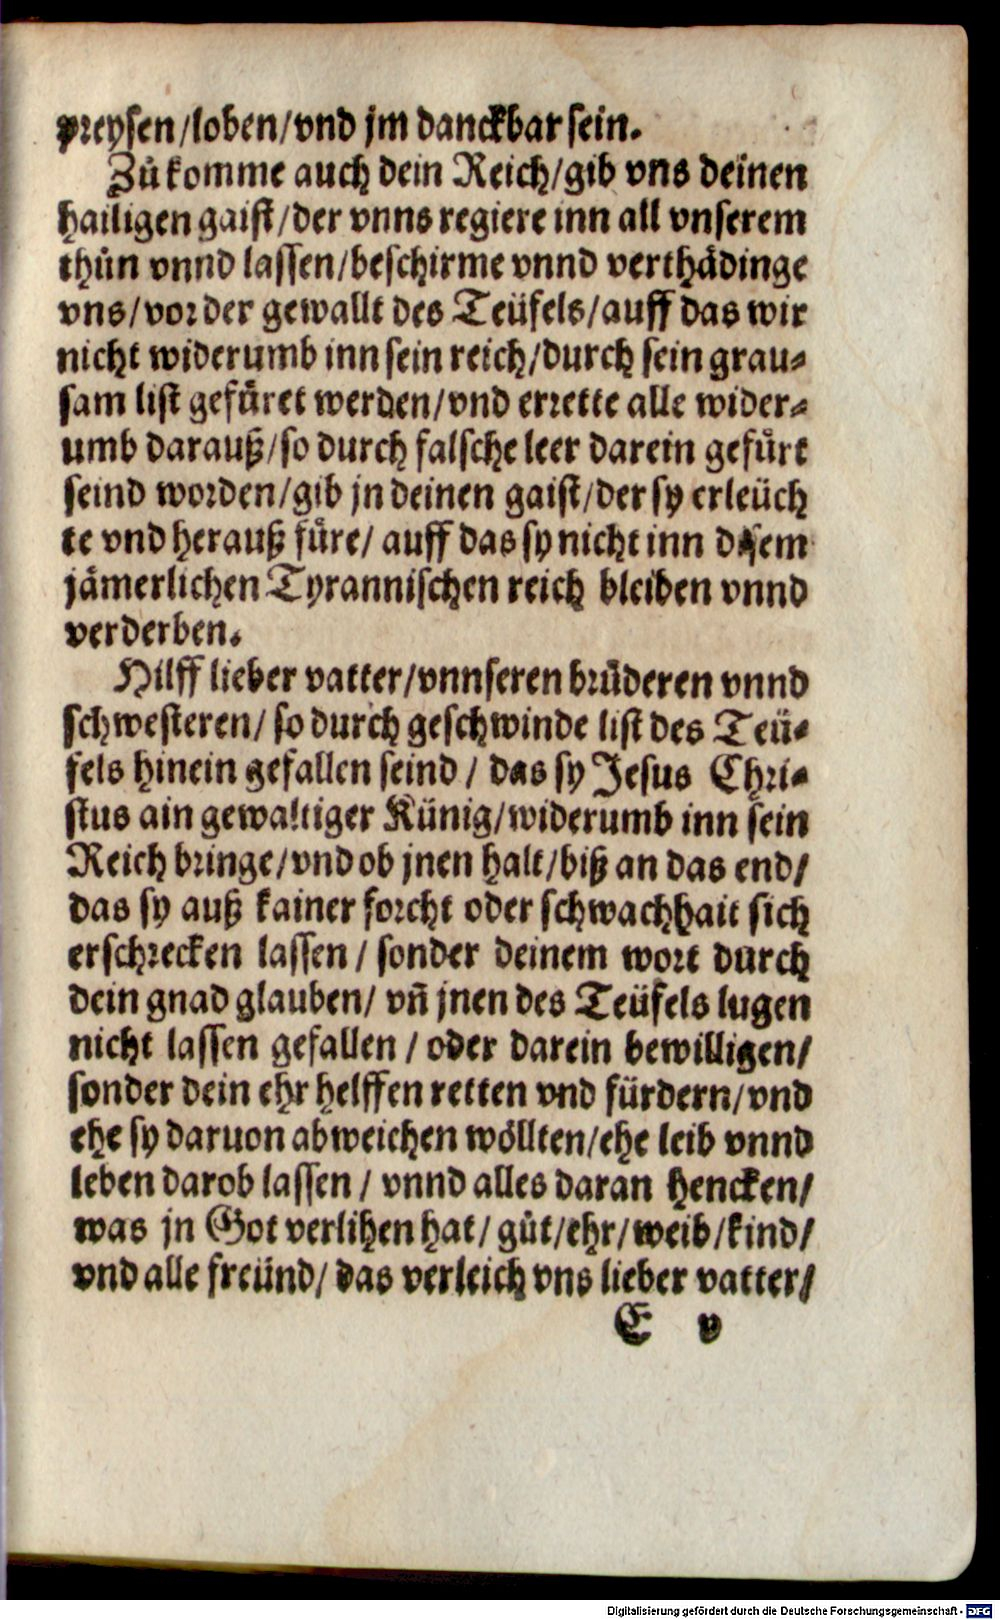 preysen/loben/vnd jm danckbar sein.
Zůkomme auch dein Reich/gib vns deinen
hailigen gaist/der vnns regiere inn all vnserem
thůn vnnd lassen/beschirme vnnd verthådinge
vns/vor der gewallt des Teüfels/auff das wir
nicht widerumb inn sein reich/durch sein grau-
sam list gefůret werden/vnd errette alle wider-
umb darauß/so durch falsche leer darein gefůrt
seind worden/gib jn deinen gaist/der sy erleüch
te vnd herauß fůre/ auff das sy nicht inn disem
jåmerlichen Tyrannischen reich bleiben vnnd
verderben.
Hilff lieber vatter/vnnseren brůderen vnnd
schwesteren/ so durch geschwinde list des Teü-
fels hinein gefallen seind / das sy Jesus Chri-
stus ain gewaltiger Künig/widerumb inn sein
Reich bringe/vnd ob jnen halt/biß an das end/
das sy auß kainer forcht oder schwachhait sich
erschrecken lassen / sonder deinem wort durch
dein gnad glauben/ vñ jnen des Teüfels lugen
nicht lassen gefallen / oder darein bewilligen/
sonder dein ehr helffen retten vnd fürdern/vnd
ehe sy daruon abweichen wöllten/ehe leib vnnd
leben darob lassen / vnnd alles daran hencken/
was jn Got verlihen hat/ gůt/ehr/weib/kind/
vnd alle freünd/ das verleich vns lieber vatter/
E v
Digitalisierung gefördert durch die Deutsche Forschungsgemeinschaft - DFG